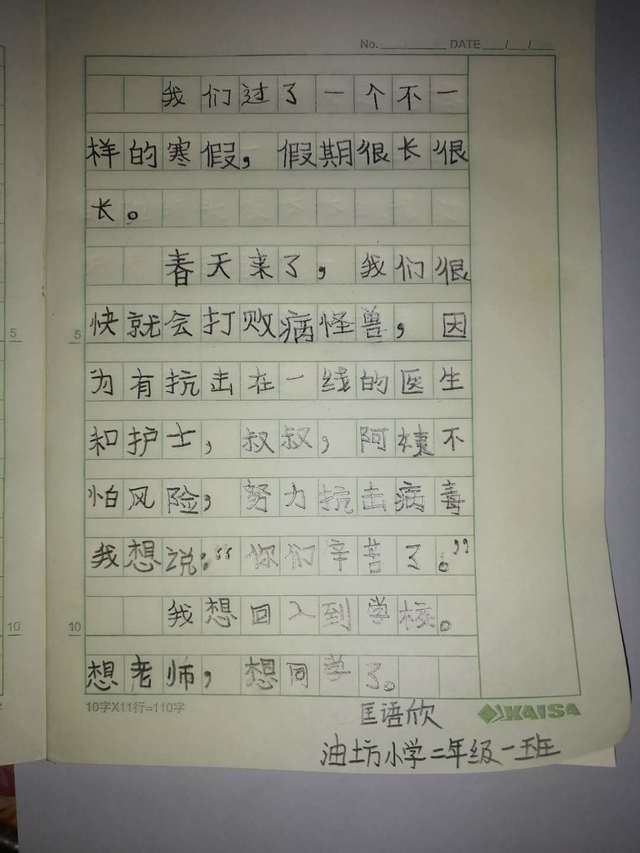 No. DATE / /
我们过了一个不一
样的寒假，假期很长很
长。
春天来了，我们很
快就会打败病怪兽，因
为有抗击在一线的医生
和护士，叔叔，阿姨不
怕风险，努力抗击病毒
我想说：“你们辛苦了。”
我想回入到学校。
想老师，想同学了。
5
5
10
10
10字X11行=110字
KAISA
匡语欣
油坊小学二年级一班